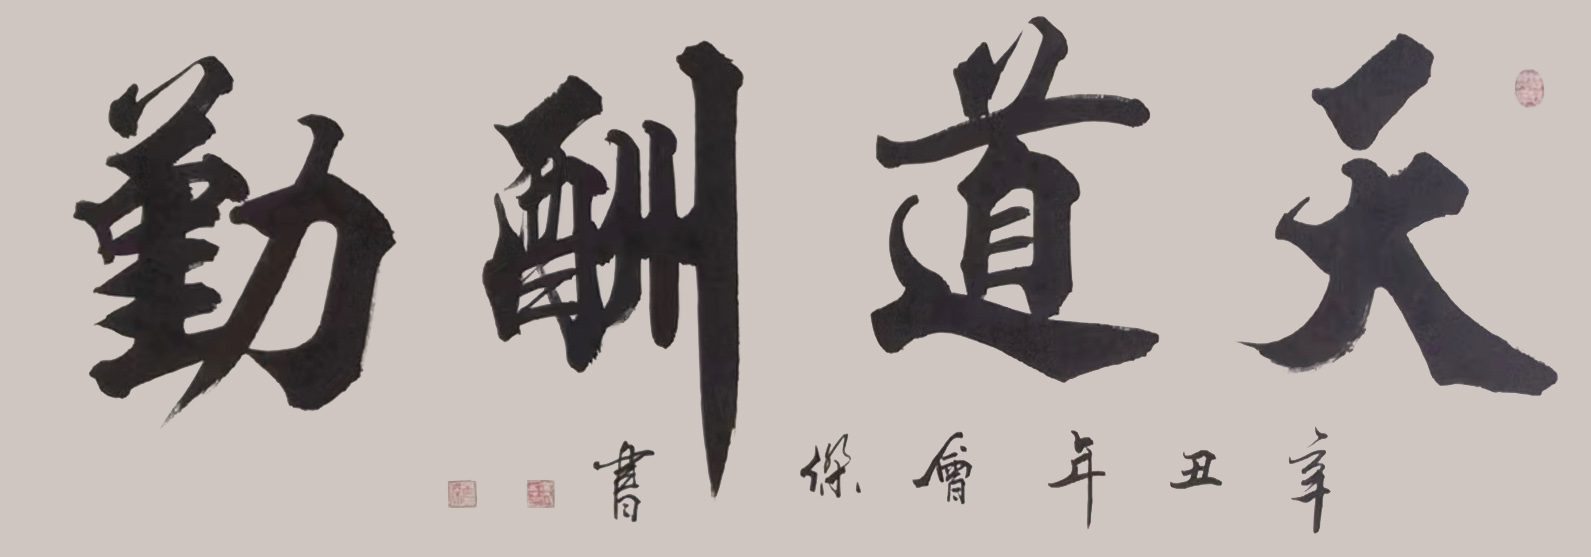 天道酬勤
辛丑年會傑書